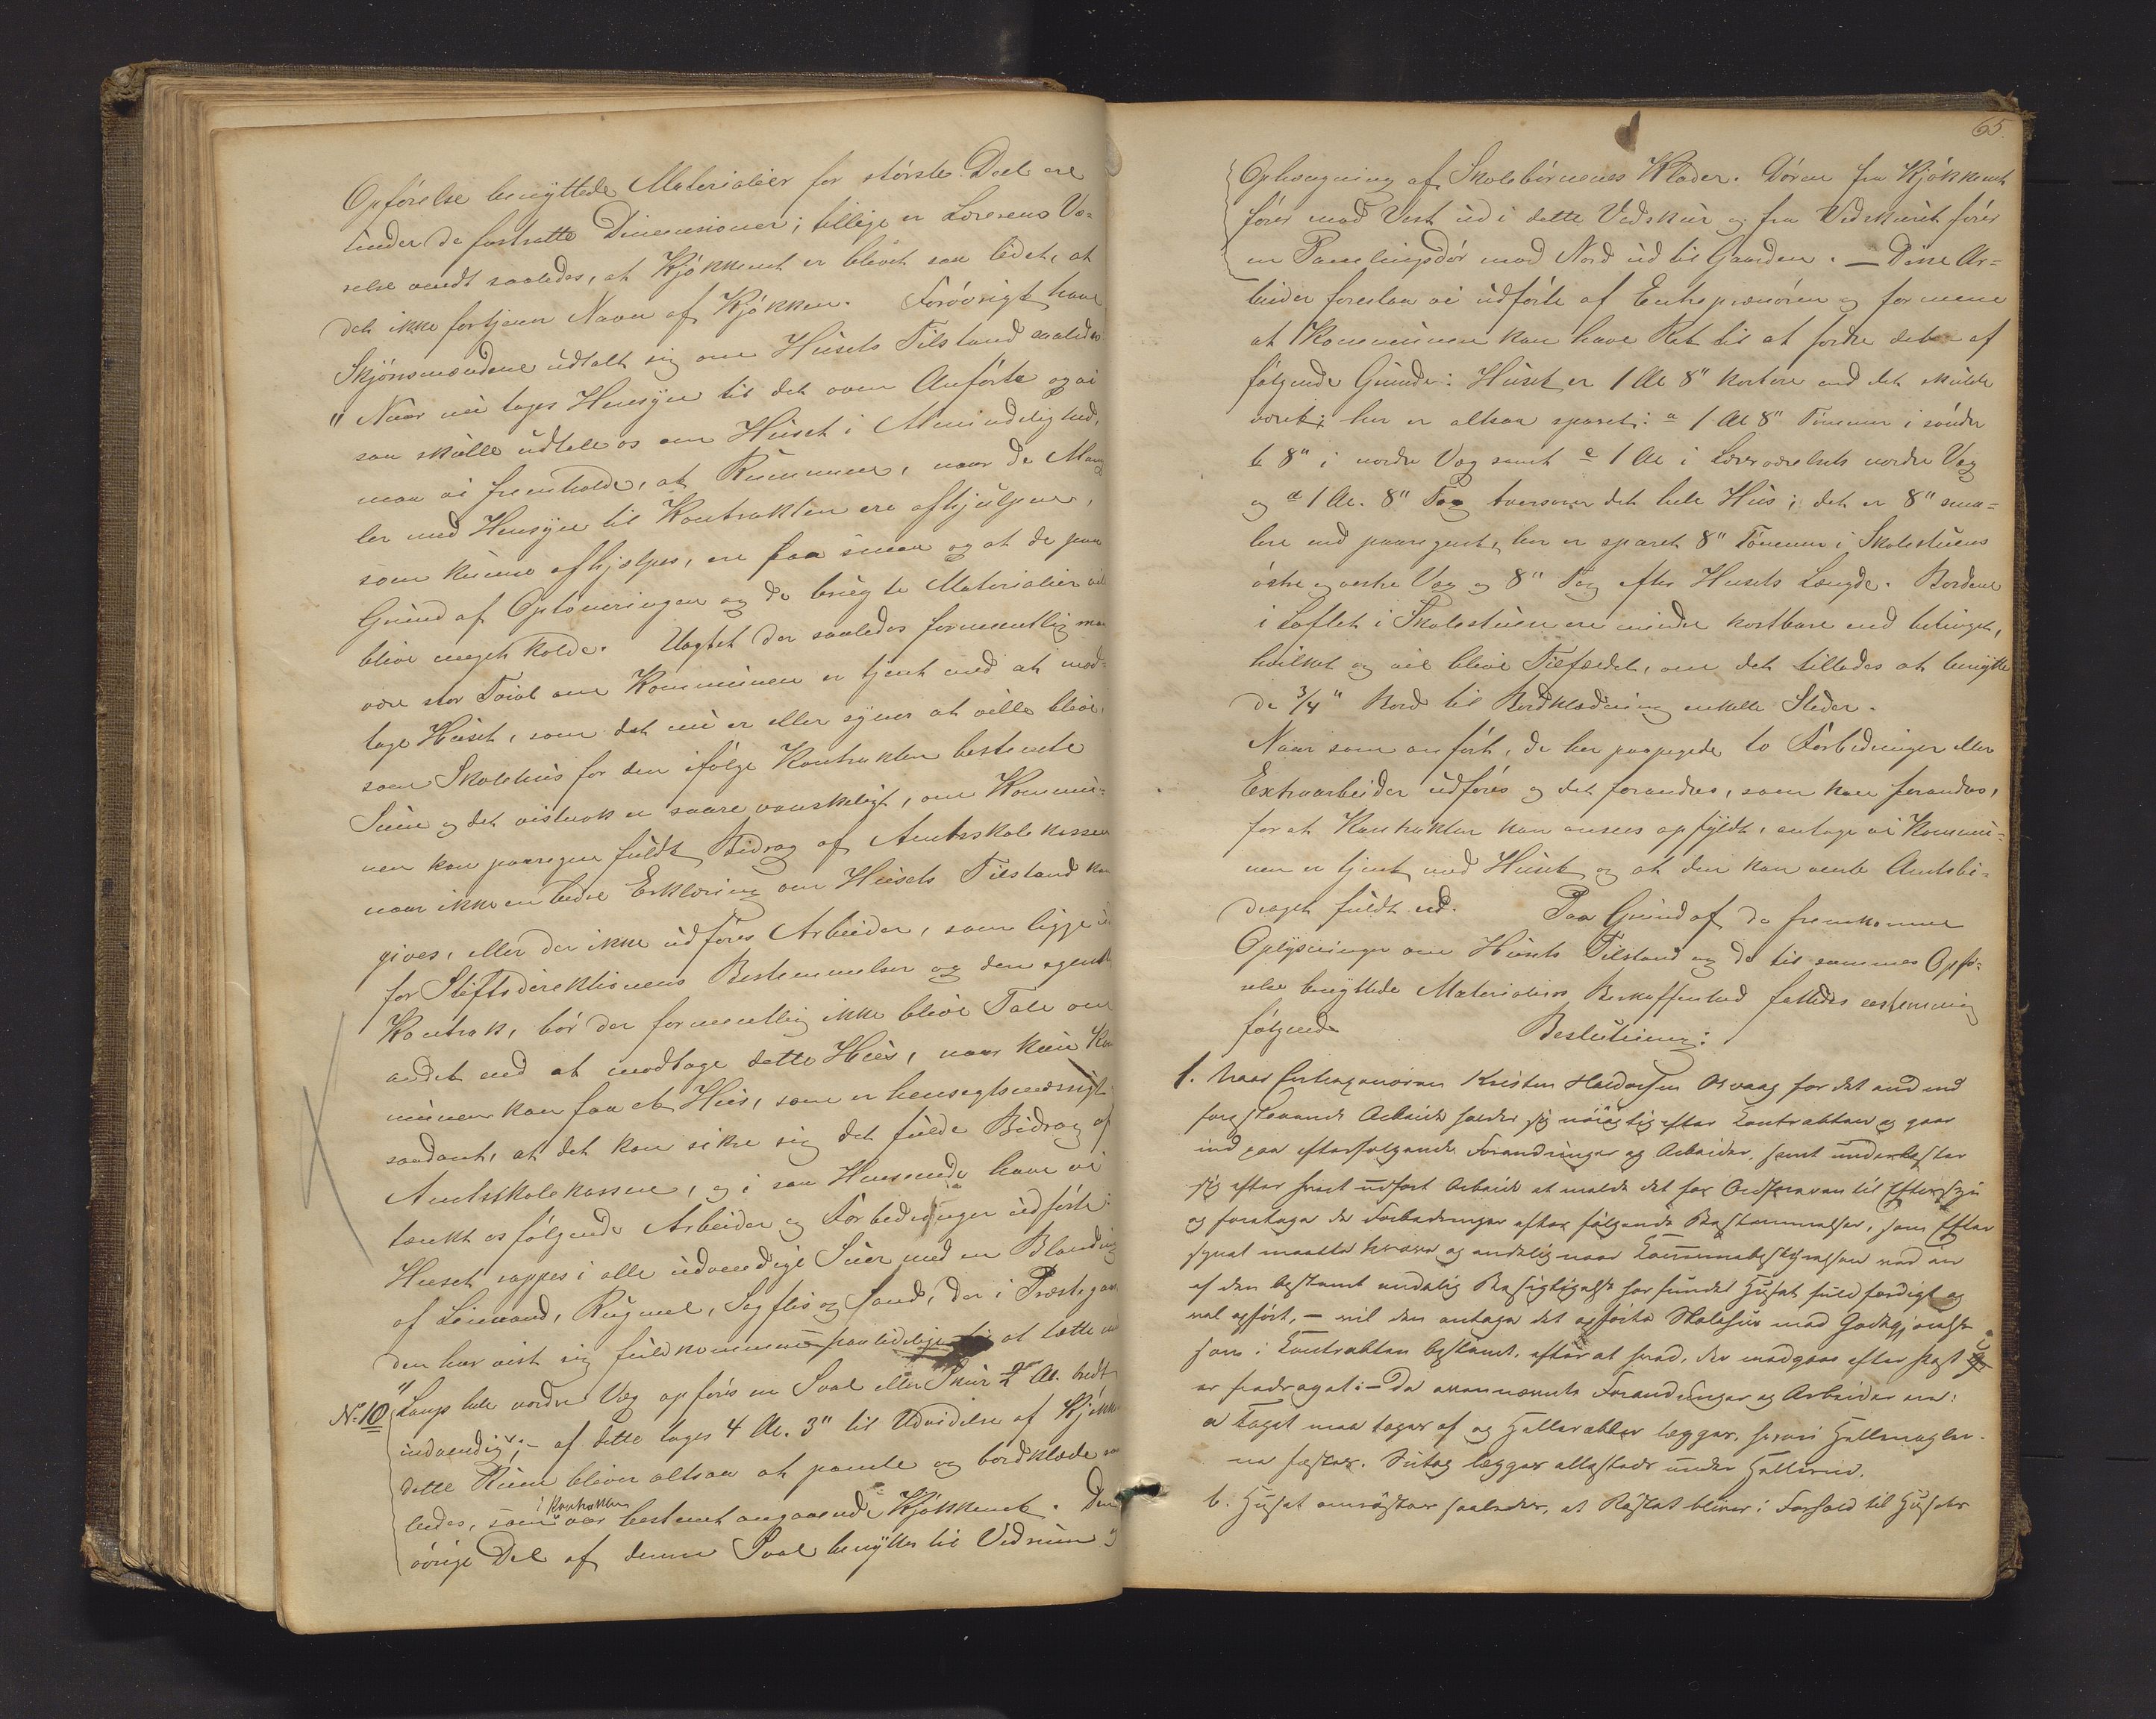 Opførelse benyttede Materialier for störste Deel ere
under de fastsatte Dimensioner; tillige er Lærerens Væ-
relse vendt saaledes, at Kjøkkenet er blevet saa lidet, at
det ikke fortjener Navn af Kjøkken. Forøvrigt have
Skjönsmændene udtalt sig om Husets Tilstand saaledes
"Naar nu tages Hensyn til det oven Anførte og vi
saa skulle udtale os om Huset i Almindelighed,
maa vi fremholde, at Rummene, naar de Mang
ler med Hensyn til Kontrakten ere afhjulpne,
som kunne afhjælpes, ere saa smaa og at de paa
Grund af Optömringen og de brugte Materialier vil
blive meget kolde. Uagtet der saaledes formentlig maa
være stor Tvivl om Kommunen er tjent med at mod-
tage Huset, som det nu er eller synes at ville blive,
som Skolehus for den ifølge Kontrakten bestemte
Sum og det vistnok er saare vanskeligt, om Kommu-
nen kan paaregne fuldt Bidrag af Amtsskolekassen
naar ikke en bedre Erklæring om Husets Tilstand kan
gives, eller der ikke udføres Arbeider, som ligge
for Stiftsdirektionens Bestemmelser og den egentl
Kontrak, bör der formentlig ikke blive Tale om
andet end at modtage dette Hus, naar kun Kom
munen kan faa et Hus, som er hensigtsmæssigt
saadant, at det kan sikre sig det fulde Bidrag af
Amtsskolekassen, og i saa Henseende have vi
tænkt os følgende Arbeider og Forbedringer udførte:
Huset rappes i alle udvendige Suer med en Blanding
af Leirvand, Rugmel, Sagflis og Sand, der i Præstegaar
den har vist sig fuldkommen paalidelige til at tætte
No 10 "Langs hele nordre Væg opføres en Sval eller Skur 2 Al. bredt
indvendig; - af dette tages 4 Al. 3" til Udvidelse af Kjøkke
dette Rum bliver altsaa at panele og bordklæde saa
ledes, som i Kontrakten var bestemt angaaende Kjøkkenet. Den
övrige Del af denne Sval benyttes til Vedrum og
65.
Ophængning af Skolebörnenes Klæder. Dören fra Kjøkkenet
förer mod Vest ud i dette Vedskur og fra Vedskuret förer
en Panelingsdör mod Nord ud til Gaarden. — Disse Ar-
beider foreslaa vi udförte af Entreprenören og formene
at Kommunen kan have Ret til at fordre det af
følgende Grunde: Huset er 1 Al 8" kortere end det skulde
været; her er altsaa sparet: a 1 Al 8" Tömmer i söndre
b 8" i nordre Væg samt c 1 Al i Lærerværelsets nordre Væg
og d 1 Al. 8" Tag tversover det hele Hus; det er 8" sma-
lere end paaregnet, her er sparet 8" Tömmer i Skolestuens
östre og vestre Væg og 8" Tag efter Husets Længde. Bordene
i Loftet i Skolestuen ere mindre kostbare end betinget,
hvilket og vil blive Tilfældet, om det tillades at benytte
de 3/4" Bord til Bordklædning enkelte Steder.
Naar som anført, de her paapegede to Forbedringer eller
Extraarbeider udföres og det forandres, som kan forandres,
for at Kontrakten kan ansees opfyldt, antage vi Kommu-
nen er tjent med Huset og at den kan vente Amtsbi-
draget fuldt ud. Paa Grund af de fremkomne
Oplysninger om Husets Tilstand og de til sammes Opfö-
relse benyttede Materialiers Beskaffenhed fattedes eenstemmig
følgende Beslutning:
1. Naar Entreprenøren Kristen Haldorsen Osvaag for det end end
forestaaende Arbeide holder sig nøiagtig efter Kontrakten og gaar
ind paa efterfølgende Forandringer og Arbeider, samt underkaster
sig efter hvert udført Arbeide at melde det for Ordføreren til Eftersyn
og foretage de Forbedringer efter følgende Bestemmelser, som Efter
synet maatte kræve og endelig naar Kommunebestyrelsen ved en
af den bestemt endelig Besigtigelse har fundet Huset fuldfærdigt og
vel opført, — vil den antage det opførte Skolehus med Godtgjørelse
som i Kontrakten bestemt, efter at hvad, der medgaar efter Post
er fradraget: — De ovennævnte Forandringer og Arbeider ere:
a Taget maa tages af og Helleraster lægges, hvori Hellenagler-
ne fæstes. Sutag lægges allesteds under Hellerne.
b. Huset omröstes saaledes, at Röstet bliver i Forhold til Husets